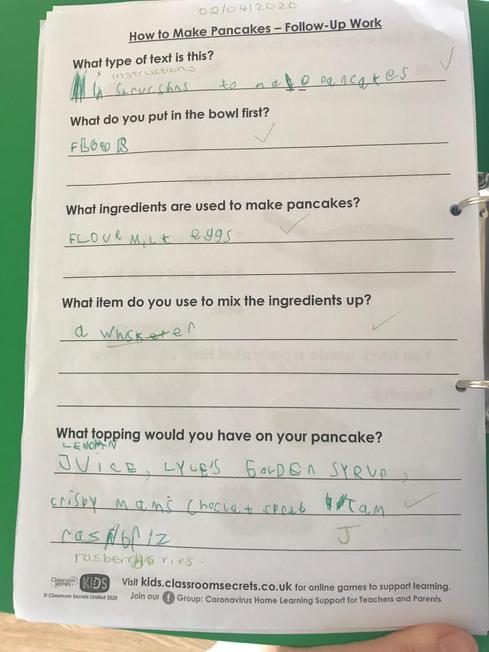 02/04/2020
How to Make Pancakes – Follow-Up Work
What type of text is this?
instructions
to make pancakes
What do you put in the bowl first?
What ingredients are used to make pancakes?
FLOUR MiLk eggs
What item do you use to mix the ingredients up?
a whisker
What topping would you have on your pancake?
LEMON
JUICE, LYLE'S GOLDEN SYRUP,
crispy
J
Classroom Secrets KIDS
Visit kids.classroomsecrets.co.uk for online games to support learning.
© Classroom Secrets Limited 2020
Join our f Group: Coronavirus Home Learning Support for Teachers and Parents